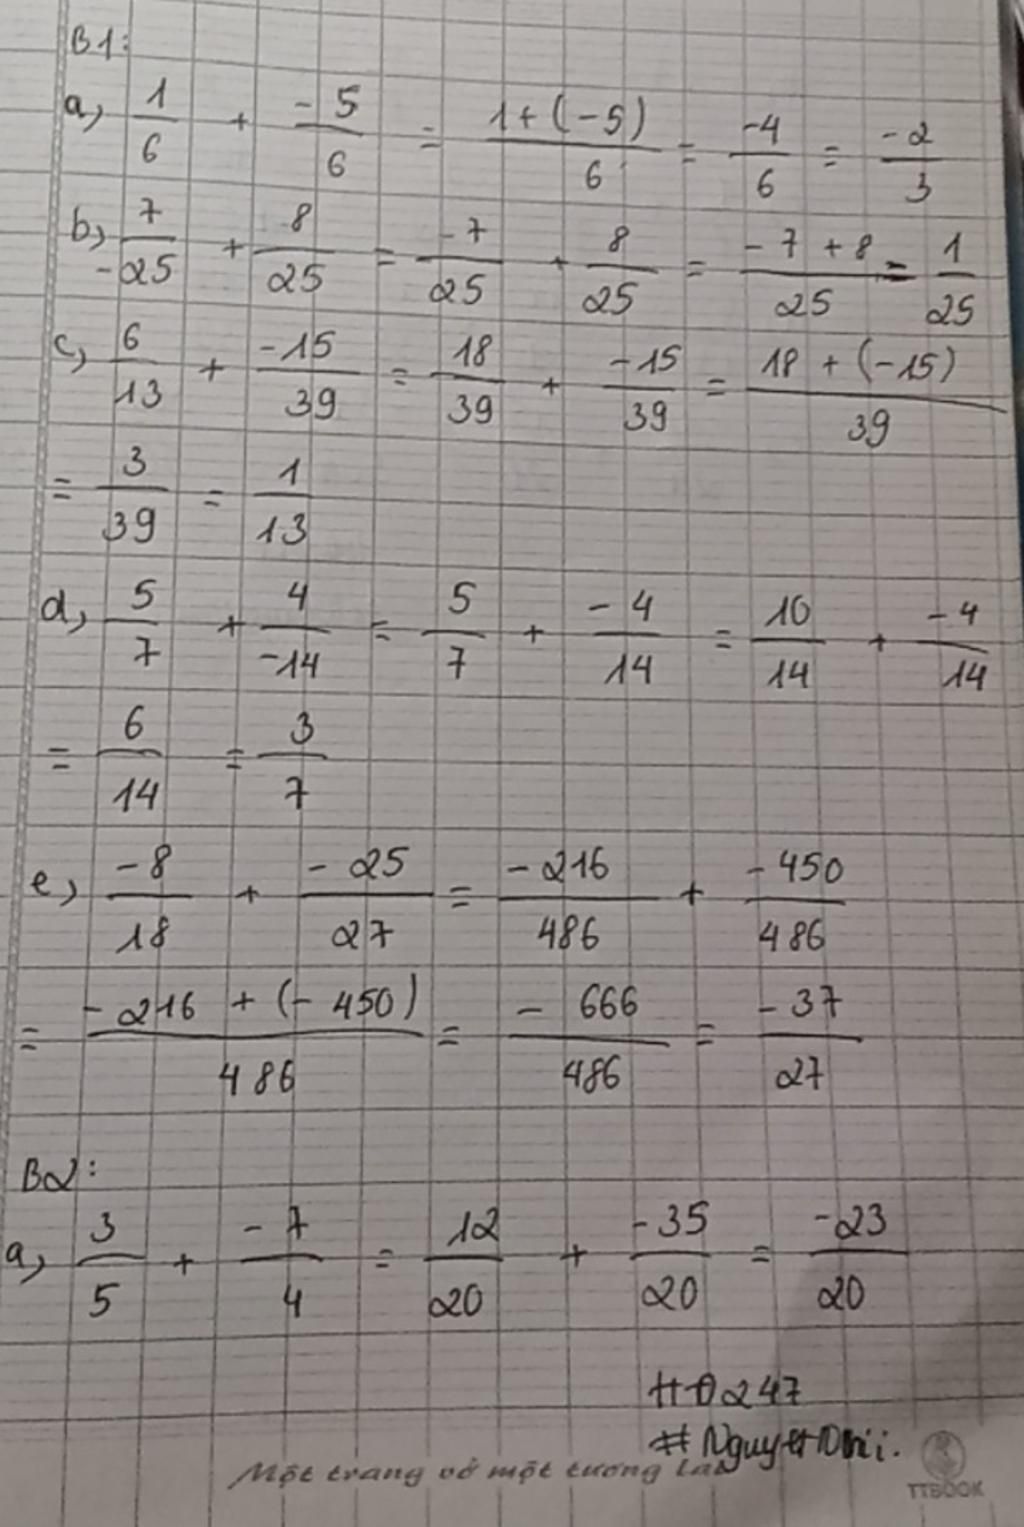 B1:
a, 1/6 + -5/6 = 1+(-5)/6 = -4/6 = -2/3
b, 7/-25 + 8/25 = -7/25 + 8/25 = -7+8/25 = 1/25
c, 6/13 + -15/39 = 18/39 + -15/39 = 18+(-15)/39
= 3/39 = 1/13
d, 5/7 + 4/-14 = 5/7 + -4/14 = 10/14 + -4/14
= 6/14 = 3/7
e, -8/18 + -25/27 = -216/486 + -450/486
= -216+(-450)/486 = -666/486 = -37/27
B2:
a, 3/5 + -7/4 = 12/20 + -35/20 = -23/20
247
Một trang vở một tương lai
TTBOOK